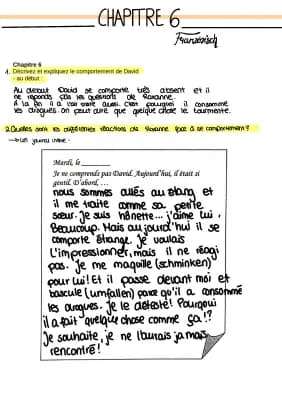 CHAPITRE 6
Französisch
Chapitre 6
1. Décrivez et expliquez le comportement de David
- au début :
Au debout David se comporte très absent et il
ne reponds pas les questions de Roxanne.
A la fin il a l'air triste aussi. C'est pourquoi il consomme
les drogues. On peut dire que quelque chose le tourmente.
2. Quelles sont les différentes réactions de Roxanne face à ce comportement?
→ un journal intime.
Mardi, le
Je ne comprends pas David. Aujourd'hui, il était si
gentil. D'abord, ...
nous sommes allés au etang et
il me traite comme sa petite
sœur. Je suis hônette... j'aime lui.
Beaucoup. Mais aujourd'hui il se
comporte étrange. Je voulais
L'impressionner, mais il ne réagi
pas. Je me maquille (schminken)
pour lui! Et il passe devant moi et
bascule (umfallen) parce qu'il a consommé
les drogues. Je le déteste! Pourquoi
il a fait quelque chose comme ça!?
Je souhaite, je ne l'aurais jamais
rencontré!